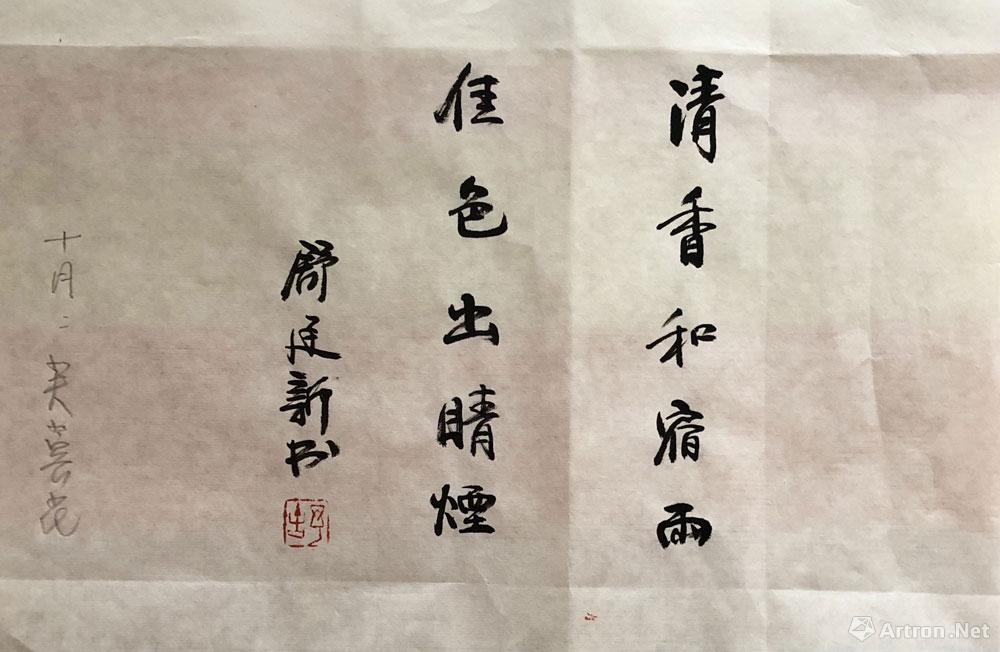 清香和宿雨
佳色出晴煙
舒廷新书
舒
十月二
Artron.Net